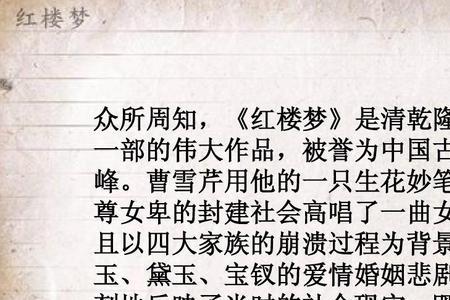 红楼梦
众所周知，《红楼梦》是清乾隆
一部的伟大作品，被誉为中国古
峰。曹雪芹用他的一只生花妙笔
尊女卑的封建社会高唱了一曲女
且以四大家族的崩溃过程为背景
玉、黛玉、宝钗的爱情婚姻悲剧